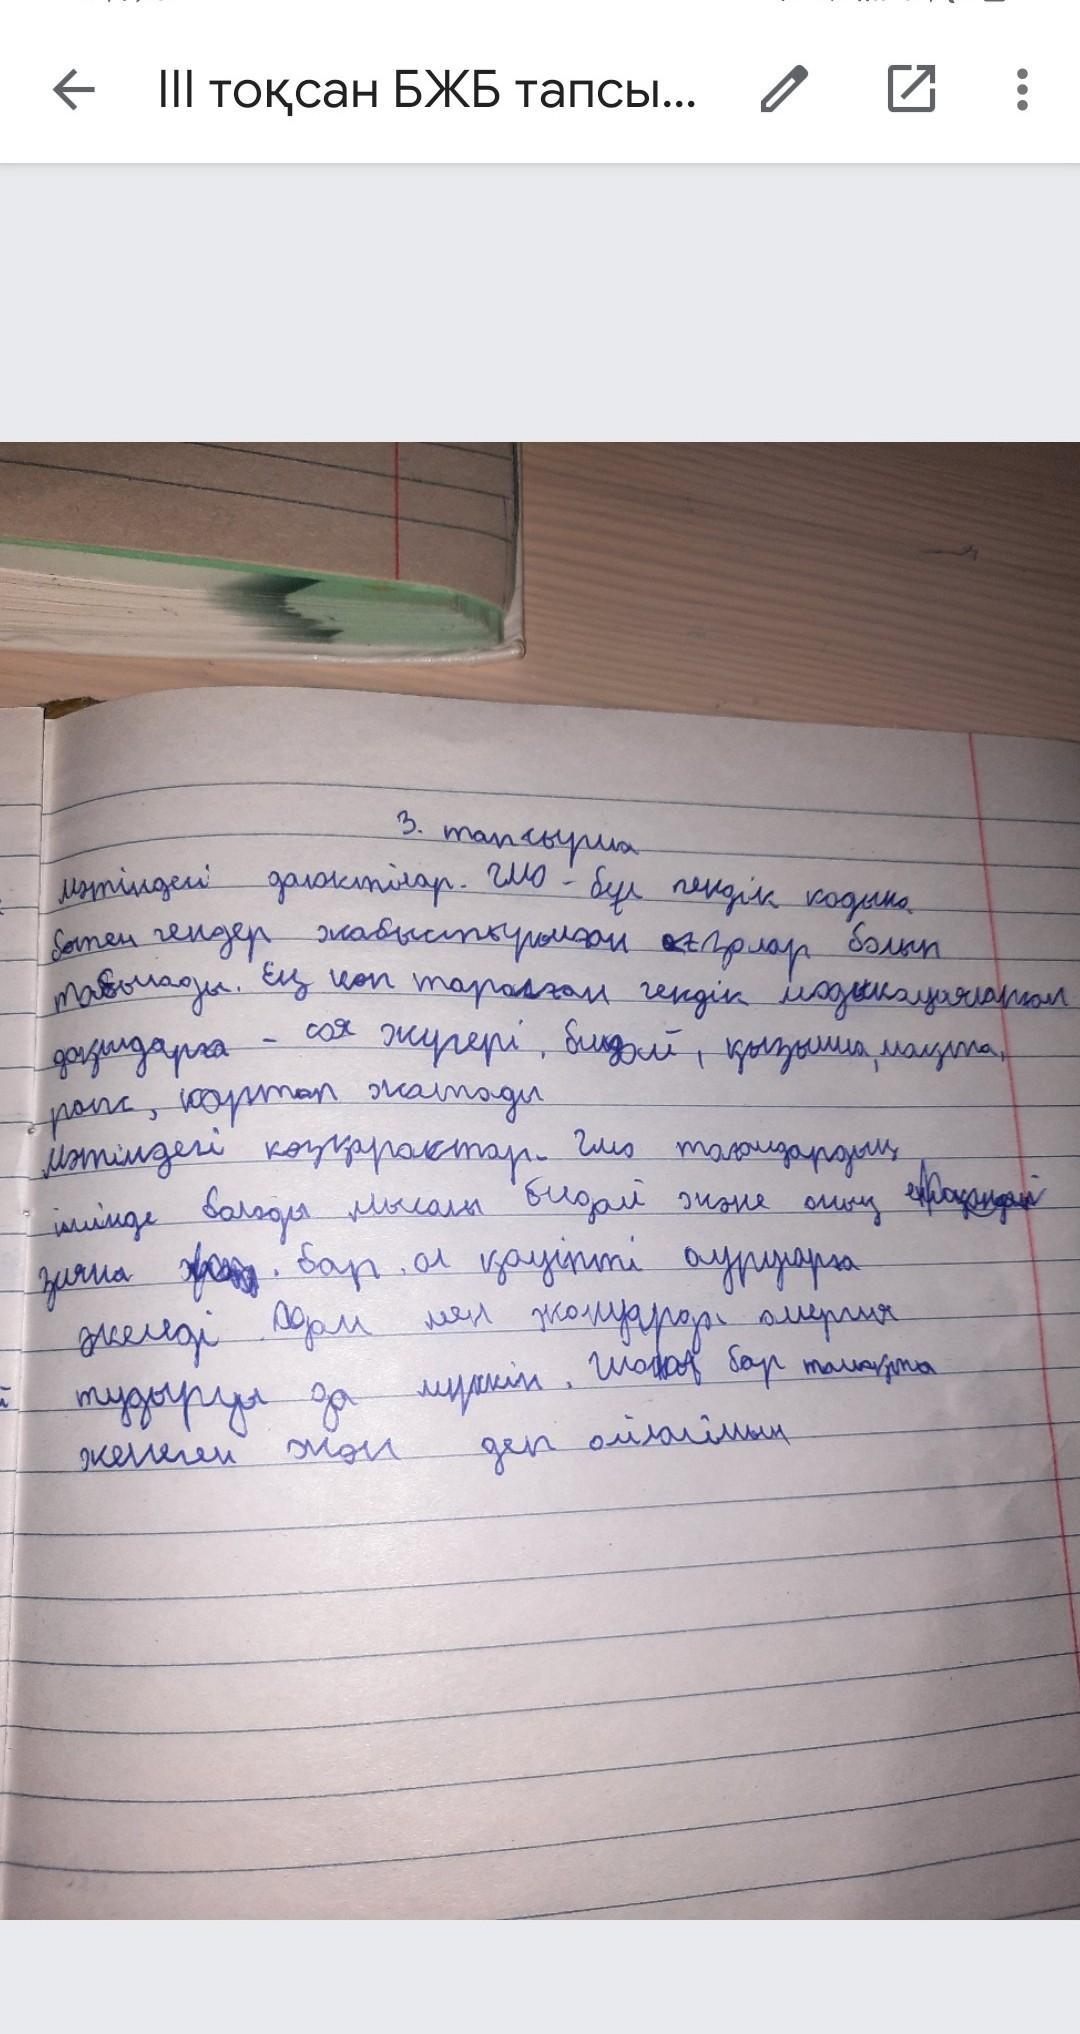 III тоқсан БЖБ тапсы...
3. тапсырма
мәтіндегі дәлөктілар. ГМО - бұл гендік кодына
бөтен гендер жабыстырылған ағзолар болып
табылады. Ең көп таралған гендік
дақылдарға - соя жүгері, бидай, қызылша, мақта,
рапс, картоп жатады
Мәтіндегі көзқарактар. Гмо тағамдардың
ішінде болады Мысалы бидай және оның
зияна бар. ол қауіпті ауруларға
әкеледі Адам мен жануарда алергия
тудыруы да мүмкін. бар тамақта
жемеген жөн деп ойлаймын